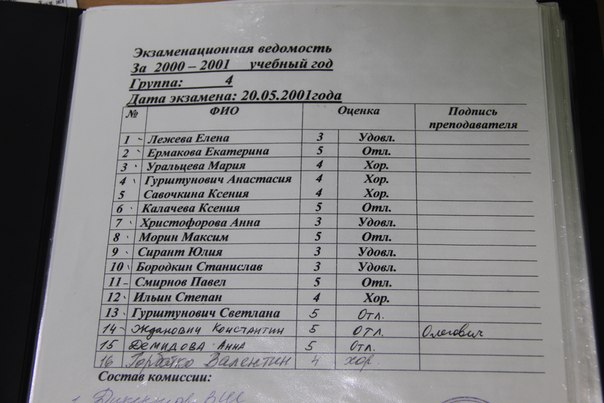 Экзаменационная ведомость
За 2000 – 2001 учебный год
Группа: 4
Дата экзамена: 20.05.2001года
№ ФИО Оценка Подпись преподавателя
1 Лежева Елена 3 Удовл.
2 Ермакова Екатерина 5 Отл.
3 Уральцева Мария 4 Хор.
4 Гурштунович Анастасия 4 Хор.
5 Савочкина Ксения 4 Хор.
6 Калачева Ксения 5 Отл.
7 Христофорова Анна 3 Удовл.
8 Морин Максим 5 Отл.
9 Сирант Юлия 3 Удовл.
10 Бородкин Станислав 3 Удовл.
11 Смирнов Павел 5 Отл.
12 Ильин Степан 4 Хор.
13 Гурштунович Светлана 5 Отл.
14 Жданович Константин 5 Отл. Олегович
15 Демидова Анна 5 Отл.
16 Гордейко Валентин 4 хор.
Состав комиссии: